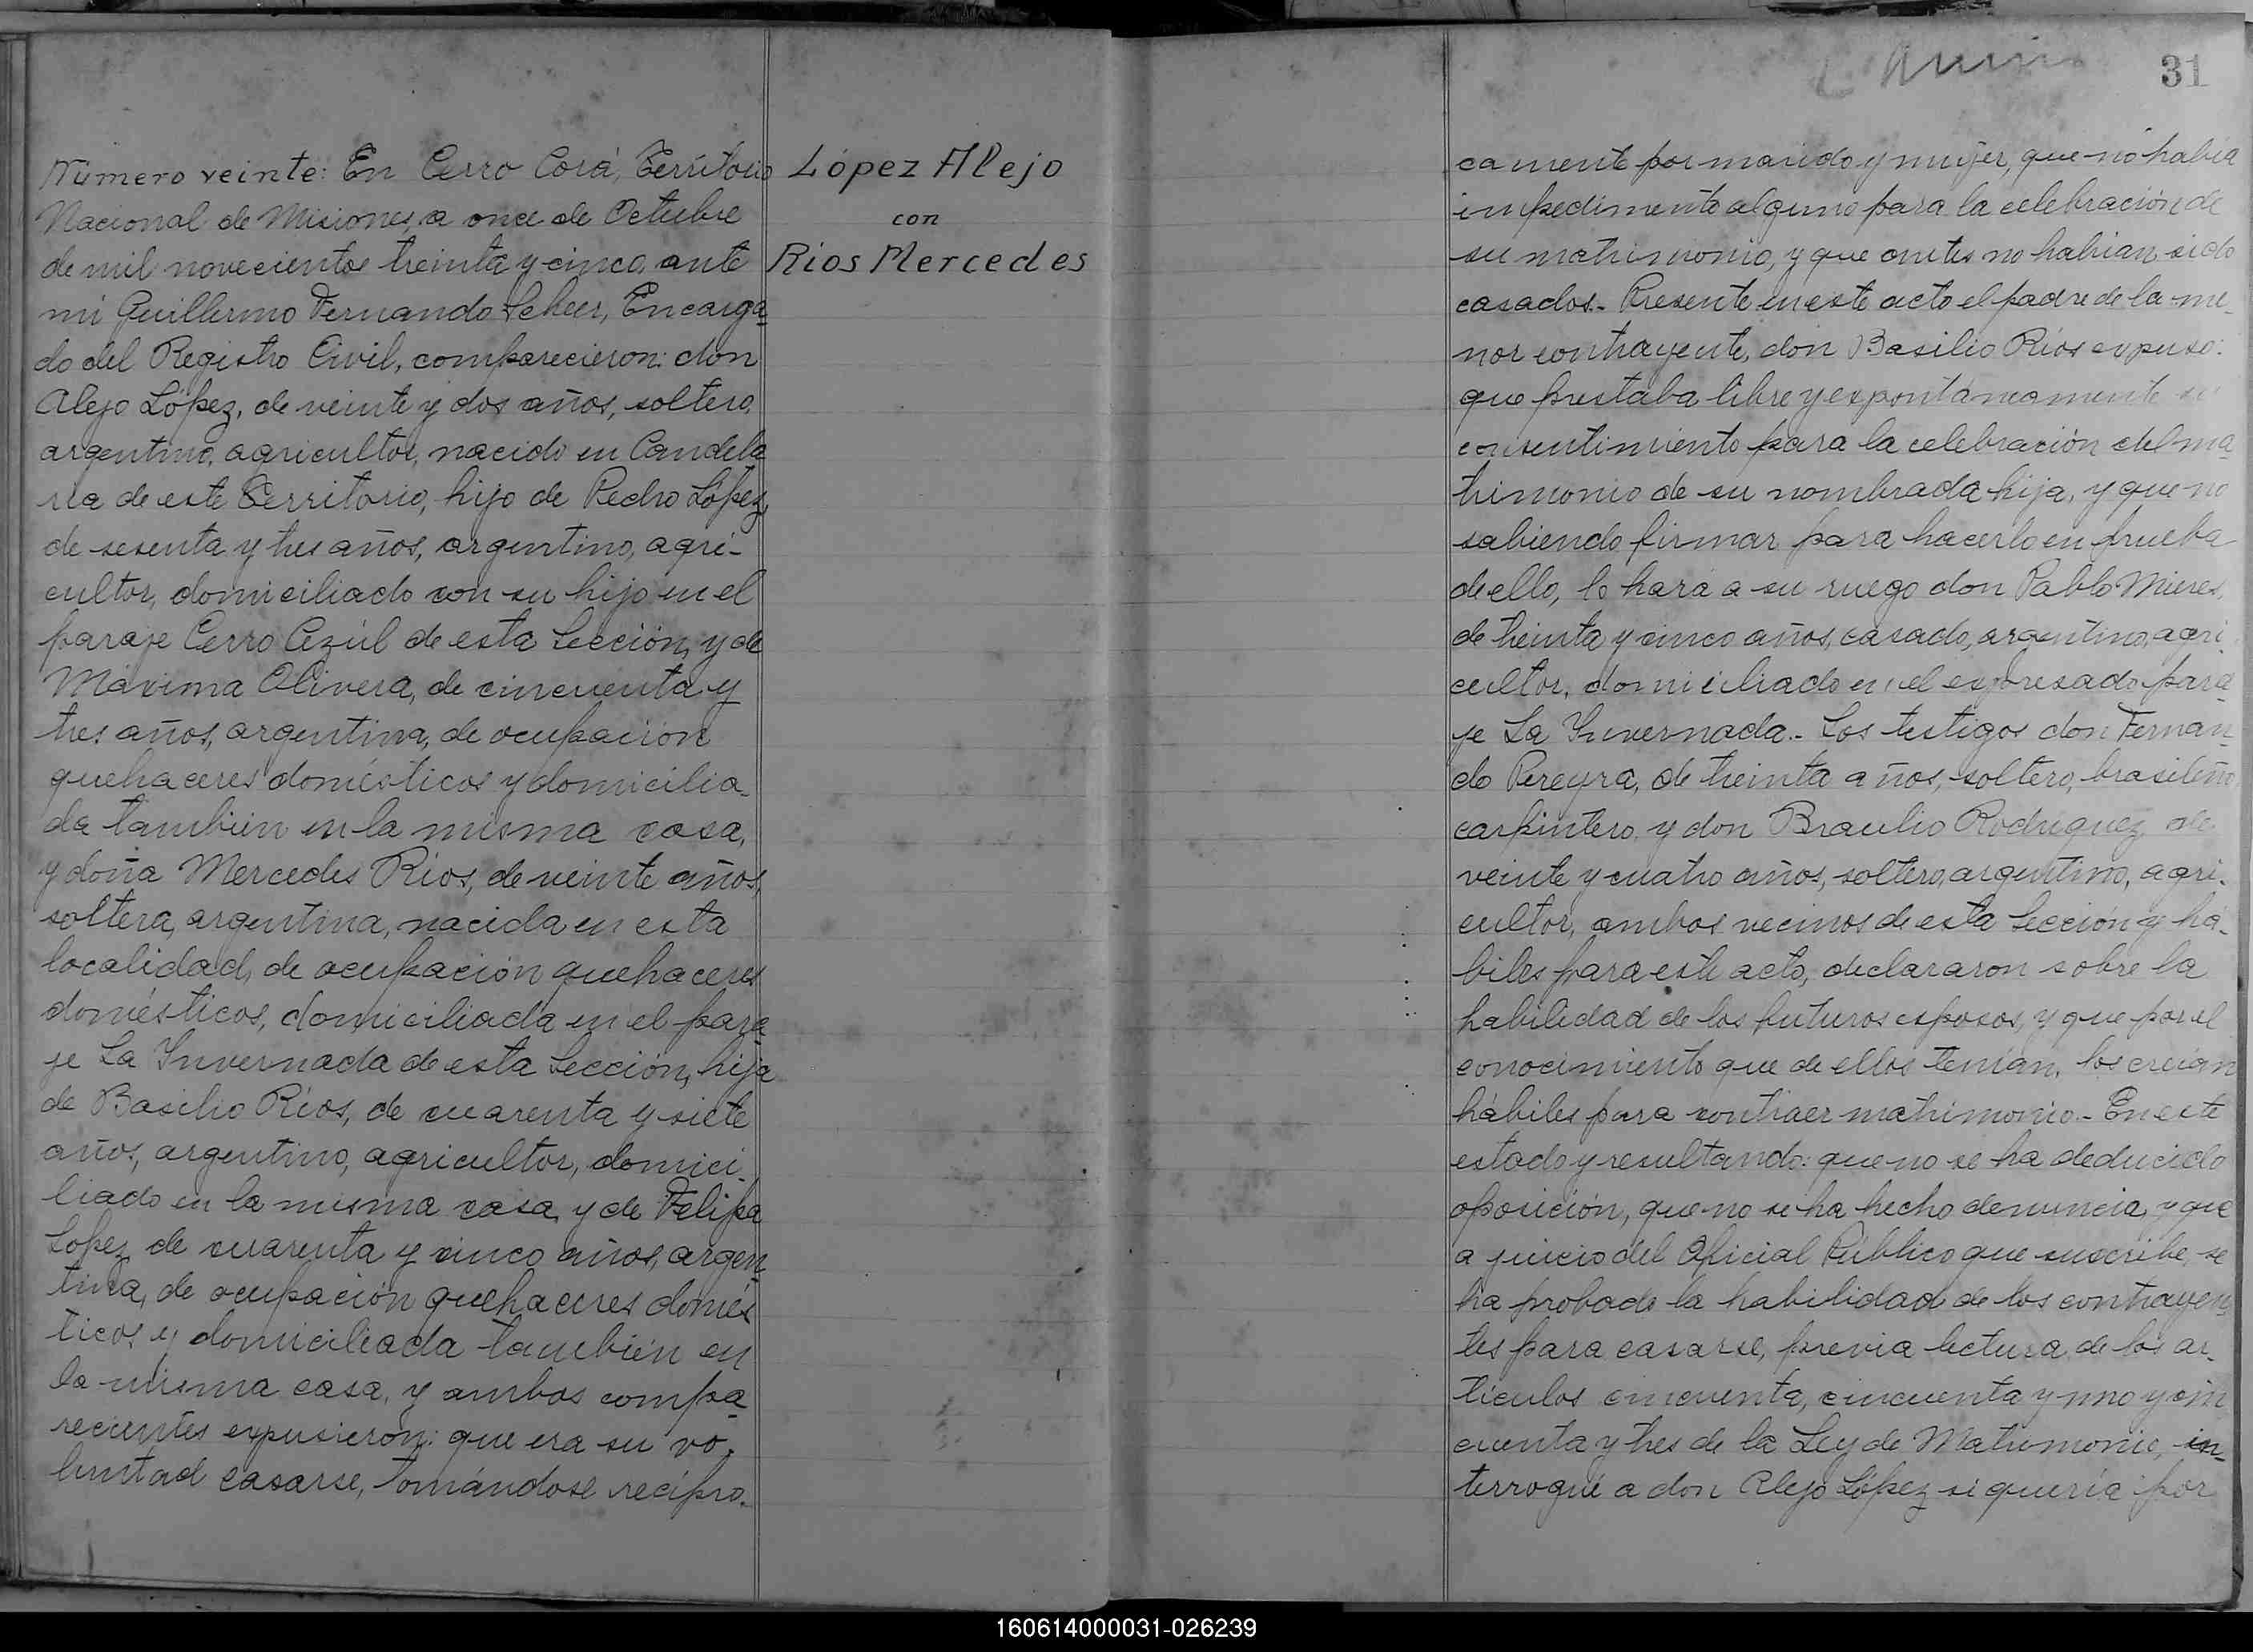 Número veinte: En Cerro Corá, Territorio
Nacional de Misiones, a once de Octubre
de mil novecientos treinta y cinco, ante
mi Guillermo Fernando Scheer, Encarga-
do del Registro Civil, comparecieron: don
Alejo López, de veinte y dos años, soltero,
argentino, agricultor, nacido en Candela
ria de este Territorio, hijo de Pedro López,
de sesenta y tres años, argentino, agri-
cultor, domiciliado con su hijo en el
paraje Cerro Azúl de esta Sección, y de
Máxima Olivera, de cincuenta y
tres años, argentina, de ocupación
quehaceres domésticos y domicilia-
da también en la misma casa,
y doña Mercedes Ríos, de veinte años,
soltera, argentina, nacida en esta
localidad, de ocupación quehaceres
domésticos, domiciliada en el para-
je La Invernada de esta Sección, hija
de Basilio Ríos, de cuarenta y siete
años, argentino, agricultor, domici-
liado en la misma casa, y de Felipa
López, de cuarenta y cinco años, argen-
tina, de ocupación quehaceres domés
ticos y domiciliada también en
la misma casa, y ambos compa-
recientes expusieron: que era su vo-
luntad casarse, tomándose recípro-
López Alejo
con
Ríos Mercedes
31
camente por marido y mujer, que no había
impedimento alguno para la celebración de
su matrimonio, y que antes no habían sido
casados.- Presente en este acto el padre de la me-
nor contrayente, don Basilio Ríos expuso:
que prestaba libre y espontáneamente su
consentimiento para la celebración del ma-
trimonio de su nombrada hija, y que no
sabiendo firmar para hacerlo en prueba
de ello, lo hará a su ruego don Pablo Mieres,
de treinta y cinco años, casado, argentino, agri-
cultor, domiciliado en el expresado para-
je La Invernada.- Los testigos don Fernan-
do Pereyra, de treinta años, soltero, brasileño
carpintero, y don Braulio Rodríguez, de
veinte y cuatro años, soltero, argentino, agri-
cultor, ambos vecinos de esta Sección y há-
biles para este acto, declararon sobre la
habilidad de los futuros esposos, y que por el
conocimiento que de ellos tenían, los creían
hábiles para contraer matrimonio.- En este
estado y resultando: que no se ha deducido
oposición, que no se ha hecho denuncia, y que
a juicio del Oficial Público que suscribe, se
ha probado la habilidad de los contrayen-
tes para casarse, previa lectura de los ar-
tículos cincuenta, cincuenta y uno y cin
cuenta y tres de la Ley de Matrimonio, in-
terrogué a don Alejo López si quería por
160614000031-026239